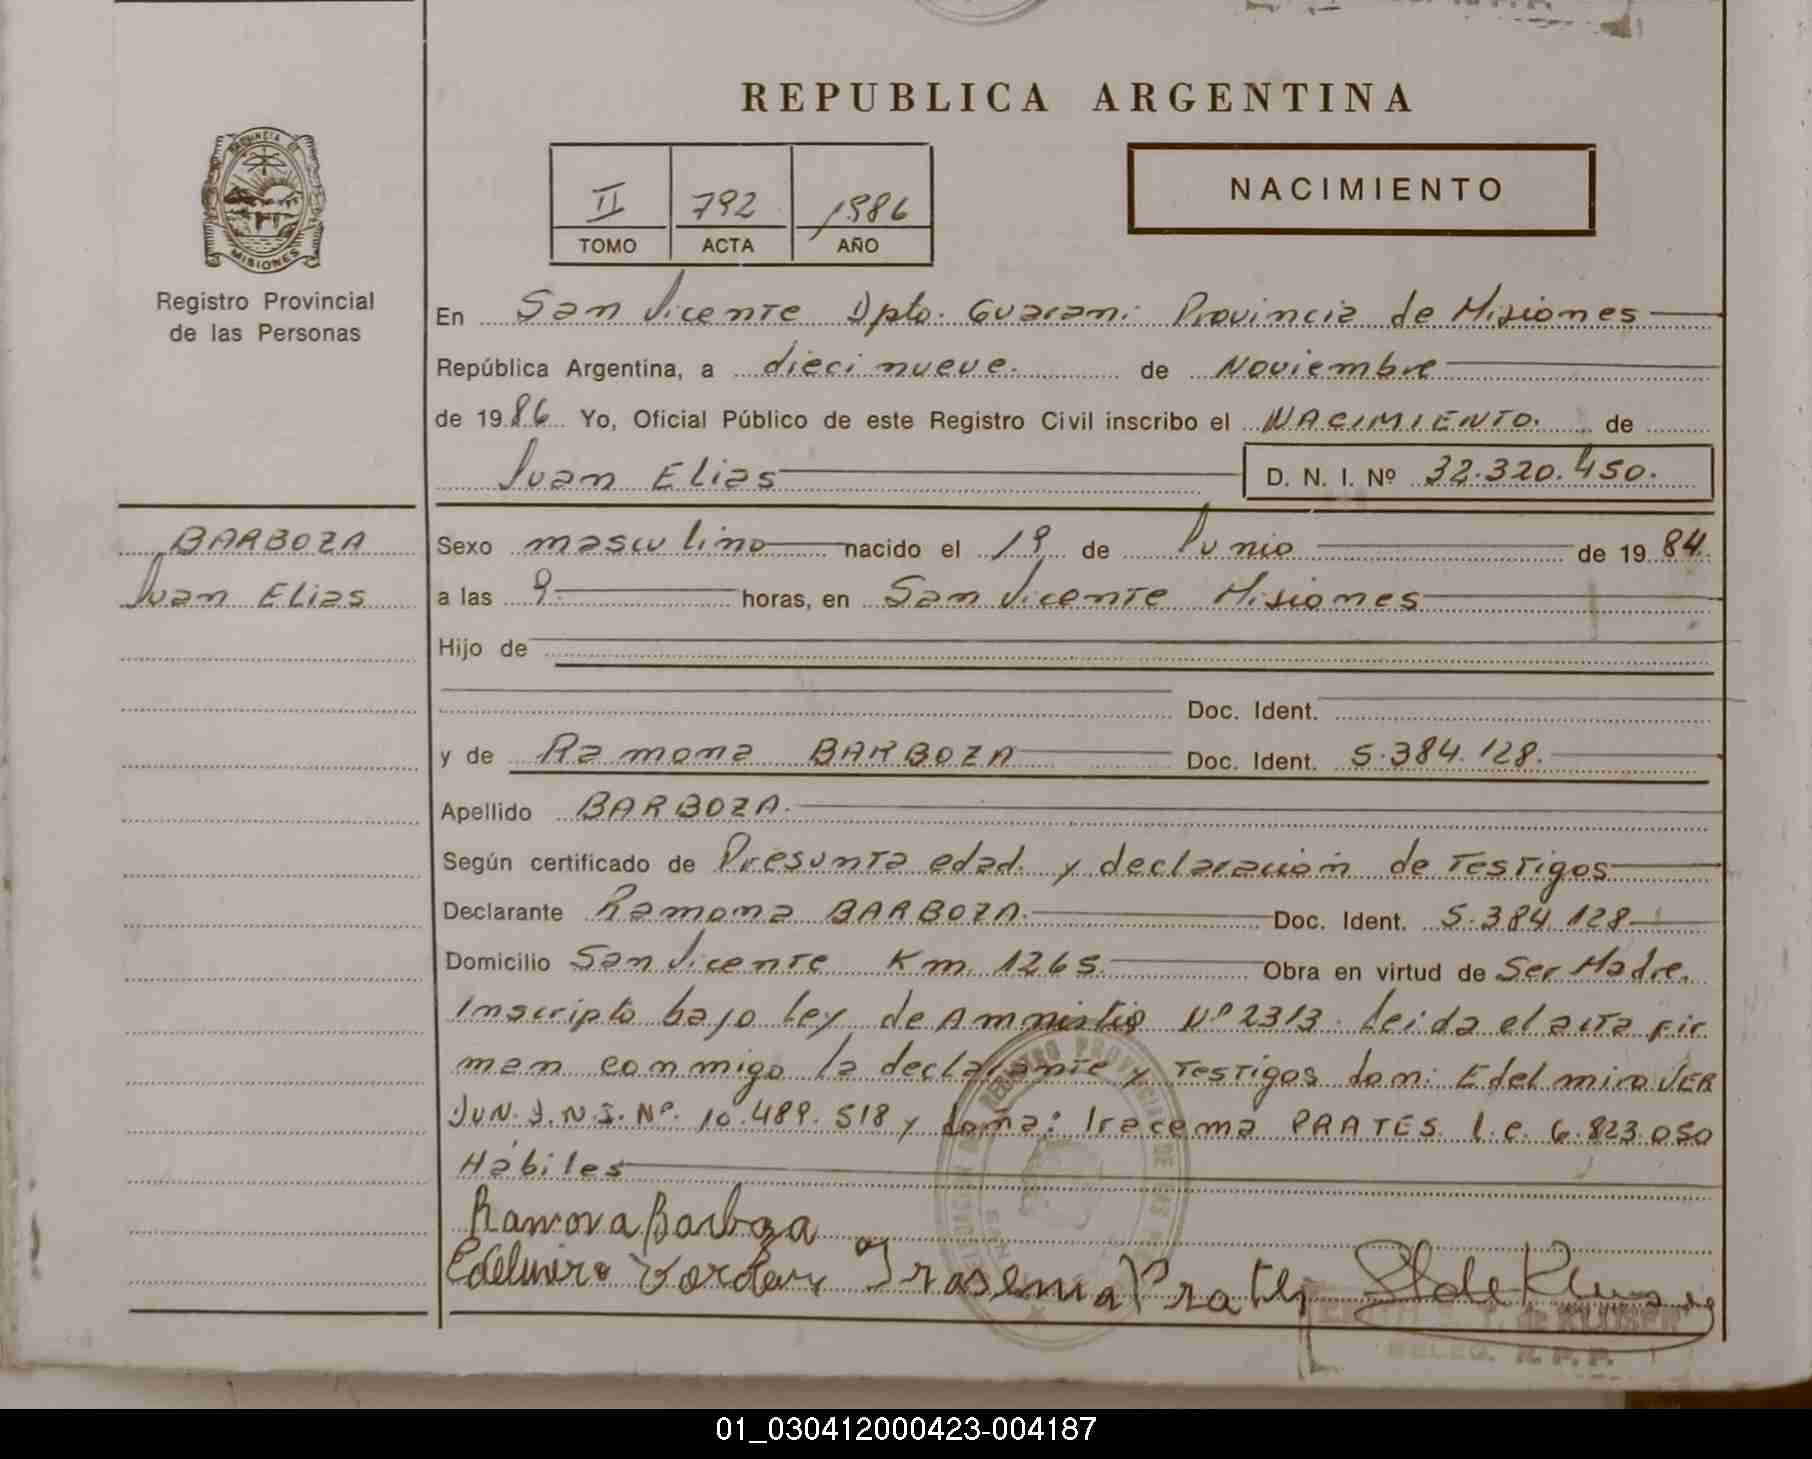 REPUBLICA ARGENTINA
PROVINCIA DE
MISIONES
Registro Provincial
de las Personas
II 792 1986
TOMO ACTA AÑO
NACIMIENTO
En San Vicente Dpto. Guarani Provincia de Misiones
República Argentina, a dieci nueve. de Noviembre
de 1986 Yo, Oficial Público de este Registro Civil inscribo el NACIMIENTO. de
Juan Elias D. N. I. Nº 32.320.450.
BARBOZA
Juan Elias
Sexo masculino nacido el 19 de Junio de 1984.
a las 9 horas, en San Vicente Misiones
Hijo de
Doc. Ident.
y de Ramona BARBOZA Doc. Ident. 5.384.128.
Apellido BARBOZA.
Según certificado de Presunta edad. y declaración de Testigos
Declarante Ramona BARBOZA. Doc. Ident. 5.384.128
Domicilio San Vicente Km. 1265. Obra en virtud de Ser Madre.
Inscripto bajo Ley de Amnistia Nº 2313. Leida el acta fir
man conmigo la declarante y Testigos don: Edelmiro VER
JUN. D.N.I. Nº. 10.489.518 y doña: Iracema PRATES L.C. 6.823.050
Hábiles
Ramona Barboza
Edelmiro Irasema Prates
de KLUSPE
DELEG. R.P.P.
01_030412000423-004187